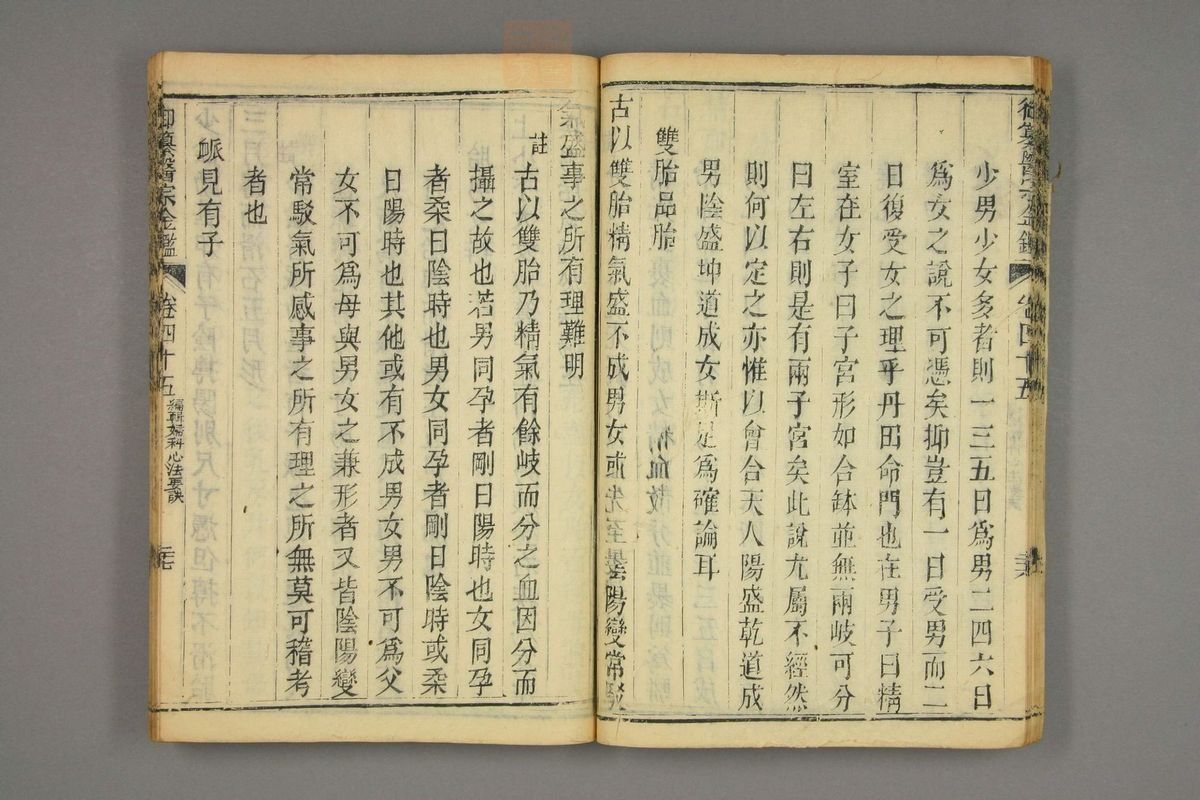 御纂醫宗金鑑
卷四十五
少男少女多者則一三五日爲男二四六日
爲女之說不可憑矣抑豈有一日受男而二
日復受女之理乎丹田命門也在男子曰精
室在女子曰子宮形如合鉢並無兩岐可分
曰左右則是有兩子宮矣此說尤屬不經然
則何以定之亦惟以會合天人陽盛乾道成
男陰盛坤道成女斯足爲確論耳
雙胎品胎
古以雙胎精氣盛不成男女或先至陽變常駁
氣盛事之所有理難明
註
古以雙胎乃精氣有餘岐而分之血因分而
攝之故也若男同孕者剛日陽時也女同孕
者柔日陰時也男女同孕者剛日陰時或柔
日陽時也其他或有不成男女男不可爲父
女不可爲母與男女之兼形者又皆陰陽變
常駁氣所感事之所有理之所無莫可稽考
者也
脈見有子
御纂醫宗金鑑
卷四十五
編輯婦科心法要訣